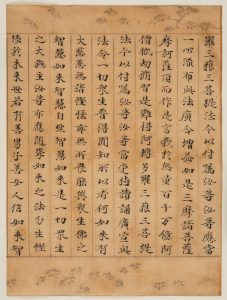 羅三藐三菩提法今以付囑汝等汝等應當
一心流布此法廣令增益如是三摩諸菩薩
摩訶薩頂而作是言我於無量百千萬億阿
僧祇劫脩習是難得阿耨多羅三藐三菩提
法今以付囑汝等汝等當受持讀誦廣宣此
法令一切衆生普得聞知所以者何如來有
大慈悲無諸慳悋亦無所畏能與衆生佛之
智慧如來智慧自然智慧如來是一切衆生
之大施主汝等亦應隨學如來之法勿生慳
悋於未來世若有善男子善女人信如來智